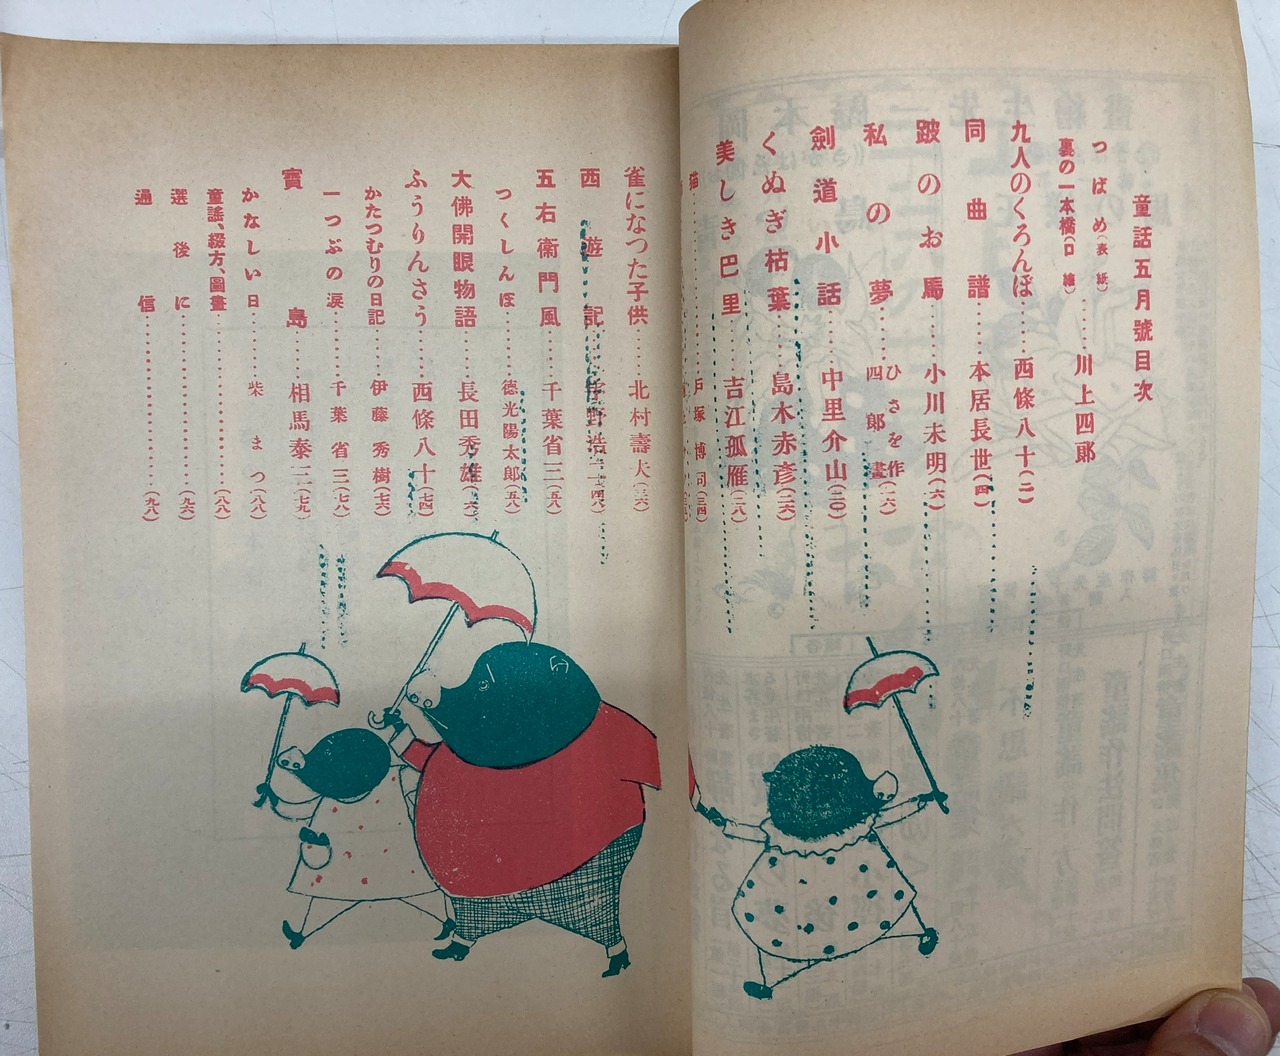 童話五月號目次
つばめ(表紙)
裏の一本橋(口繪)……川上四郎
九人のくろんぼ……西條八十(二)
同曲譜……本居長世(四)
跛のお馬……小川未明(六)
私の夢……ひさを作 四郎畫(一六)
劍道小話……中里介山(二〇)
くぬぎ枯葉……島木赤彦(二六)
美しき巴里……吉江孤雁(二八)
猫……戸塚博司(三四)
雀になつた子供……北村壽夫(三六)
西遊記……宇野浩二(四八)
五右衞門風……千葉省三(五八)
つくしんぼ……德光陽太郎(五八)
大佛開眼物語……長田秀雄
ふうりんさう……西條八十(七四)
かたつむりの日記……伊藤秀樹(七六)
一つぶの涙……千葉省三(七八)
寶島……相馬泰三(七九)
かなしい日……柴まつ(八八)
童謠、綴方、圖畫……(八八)
選後に……(九六)
通信……(九八)